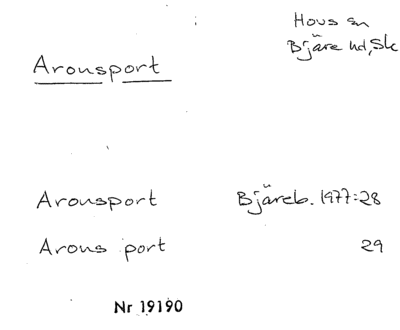 Hovs sn
Bjäre hd, Sk
Aronsport
Aronsport Bjäreb. 1977:28
Arons port 29
Nr 19190